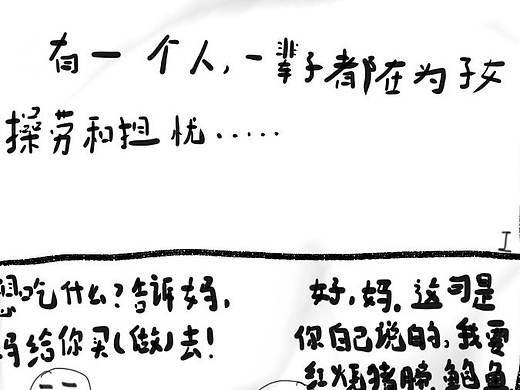 有一个人,一辈子都在为子女
操劳和担忧.....
想吃什么?告诉妈,
妈给你买(做)去!
好,妈.这可是
你自己说的,我要
红烧猪膀.鲍鱼